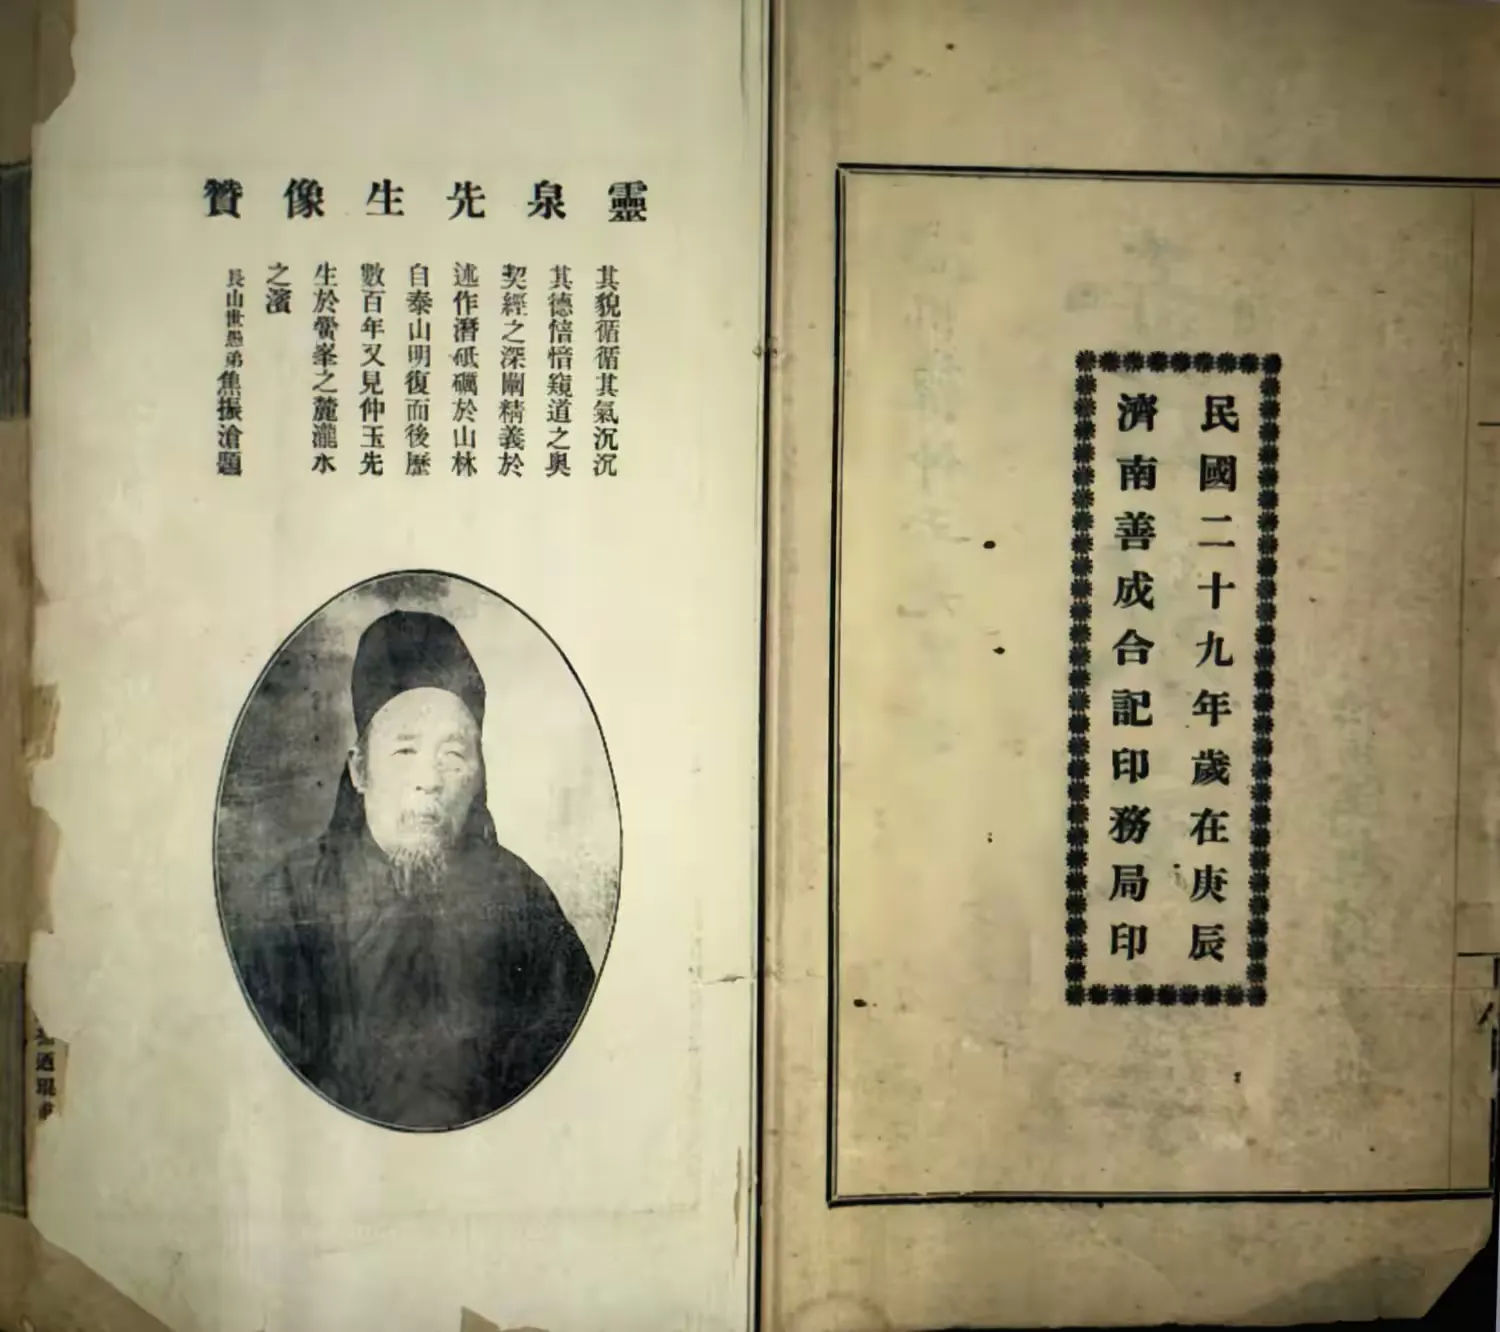 民國二十九年歲在庚辰
濟南善成合記印務局印
靈泉先生像贊
其貌循循其氣沉沉
其德愔愔窺道之奧
契經之深闡精義於
述作潛砥礪於山林
自泰山明復而後歷
數百年又見仲玉先
生於黌峯之麓瀧水
之濱
長山世愚弟焦振滄題